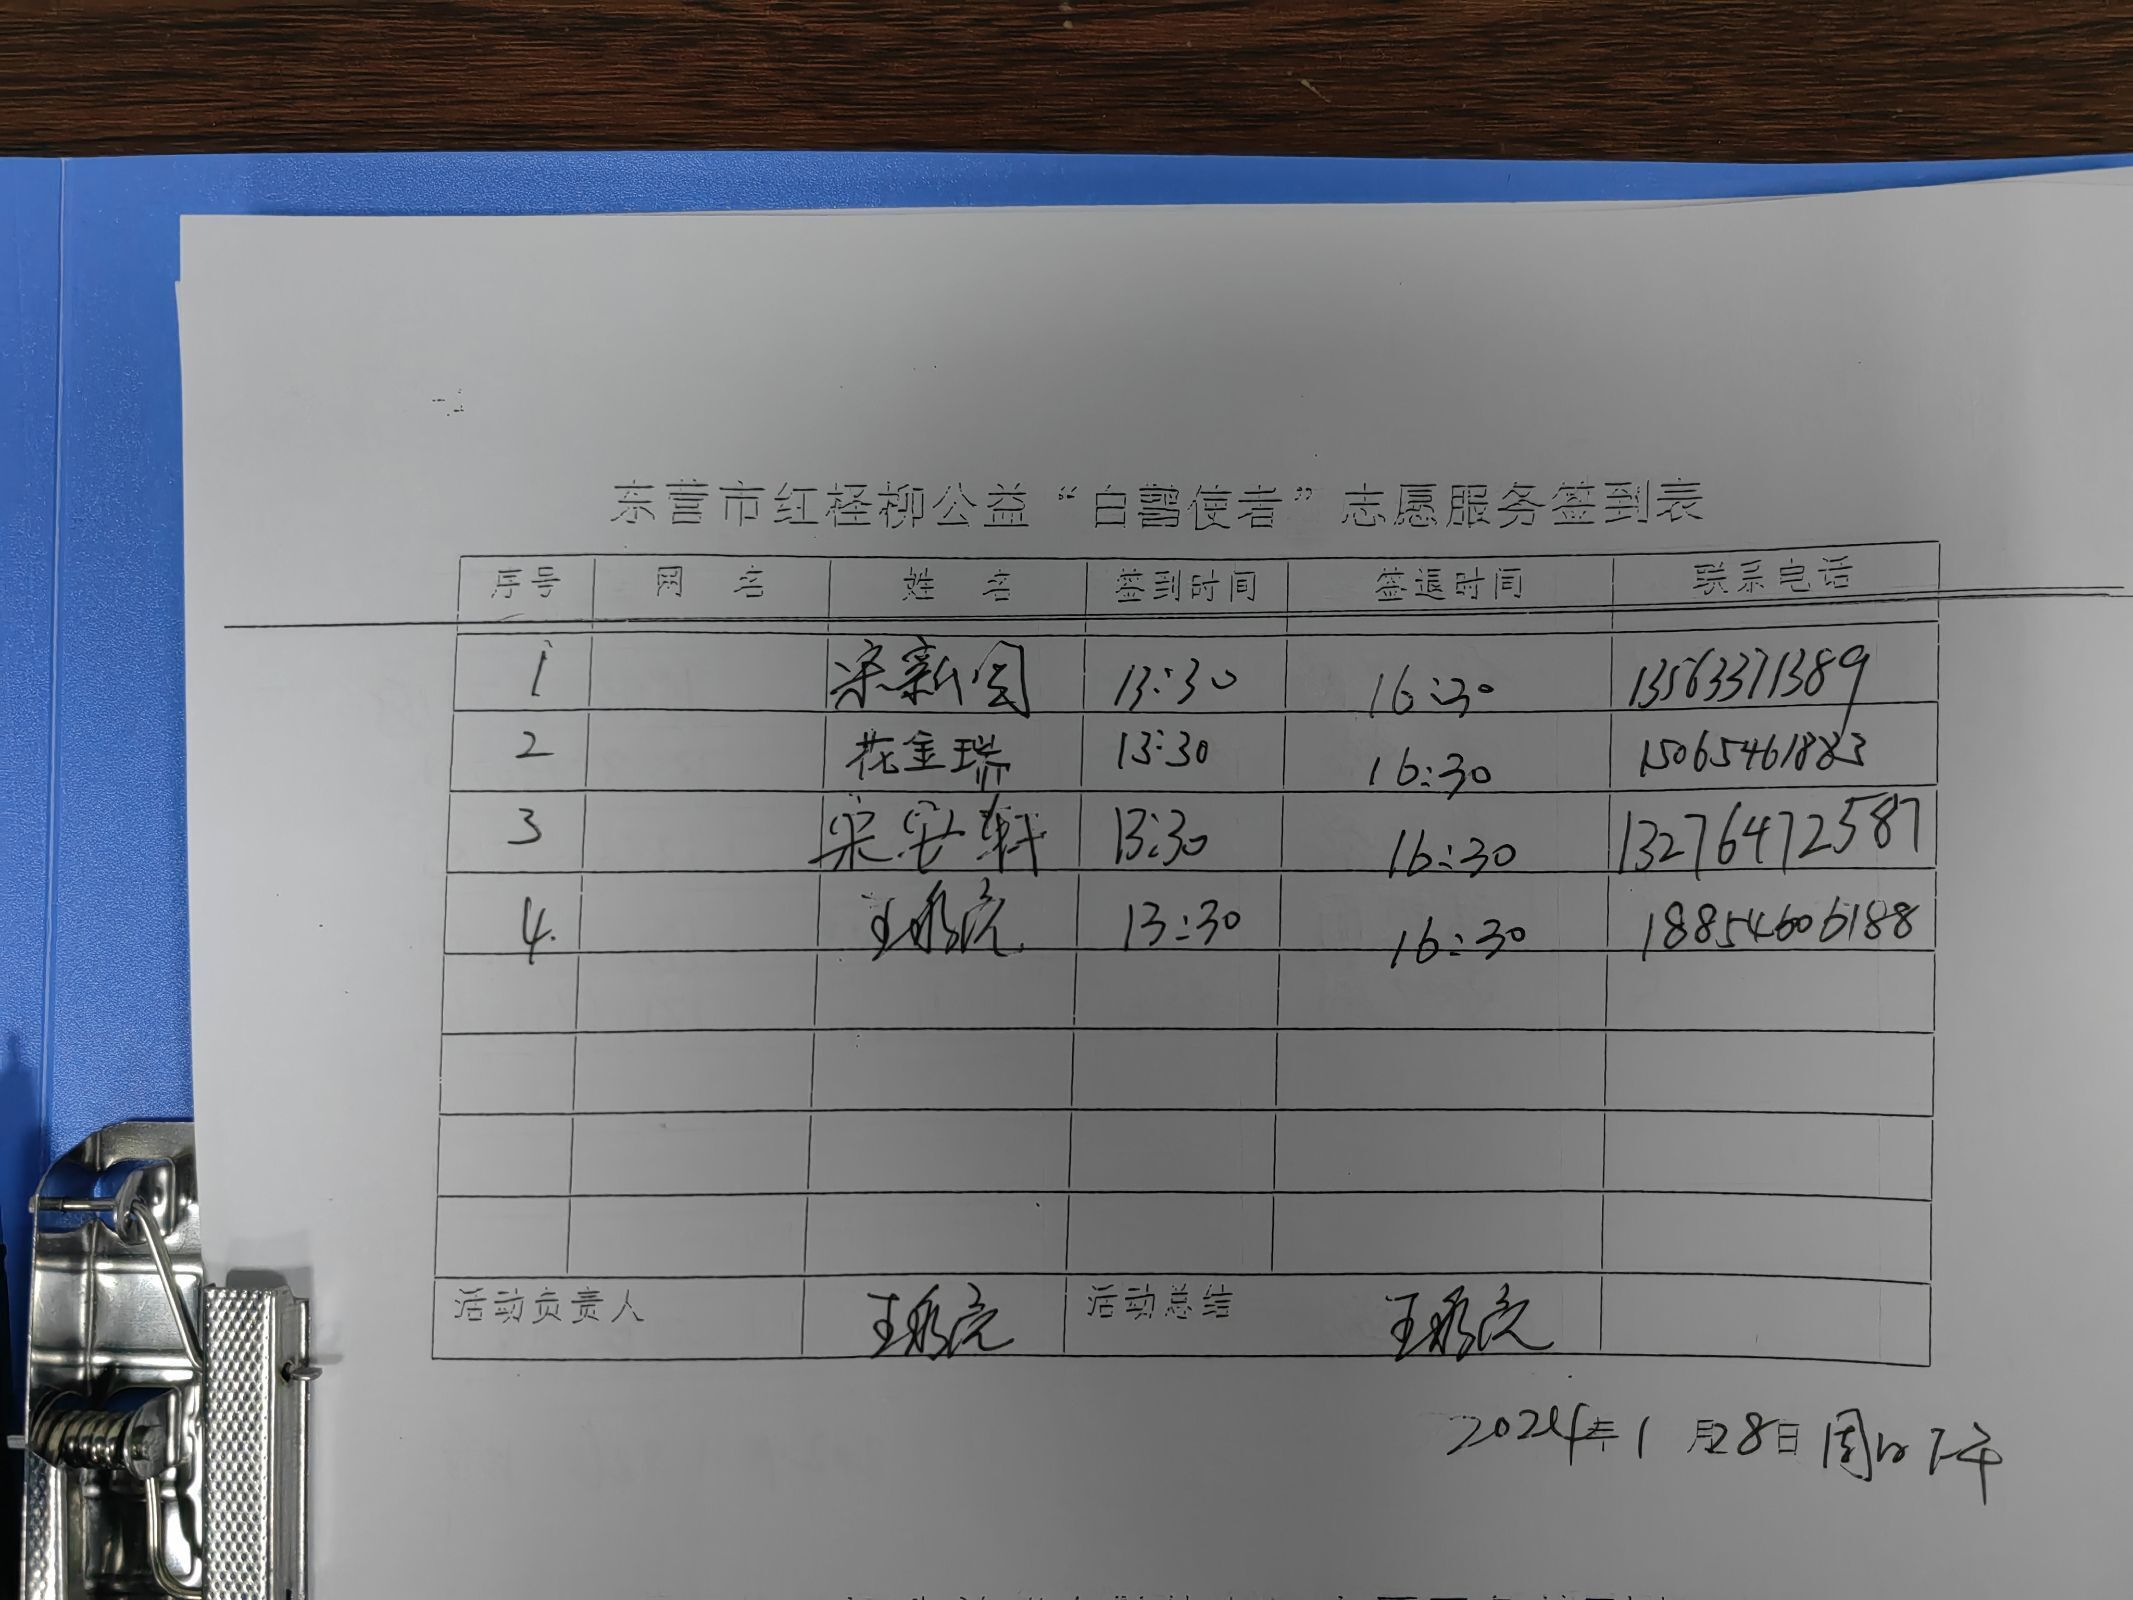 东营市红柽柳公益“白鹭使者”志愿服务签到表
序号 网 名 姓 名 签到时间 签退时间 联系电话
1 宋新国 13:30 16:30 13563371389
2 花金瑞 13:30 16:30 15065461883
3 宋安轩 13:30 16:30 13276472587
4. 王永亮 13:30 16:30 18854606188
活动负责人 王永亮 活动总结 王永亮
2024年1月28日 周日下午